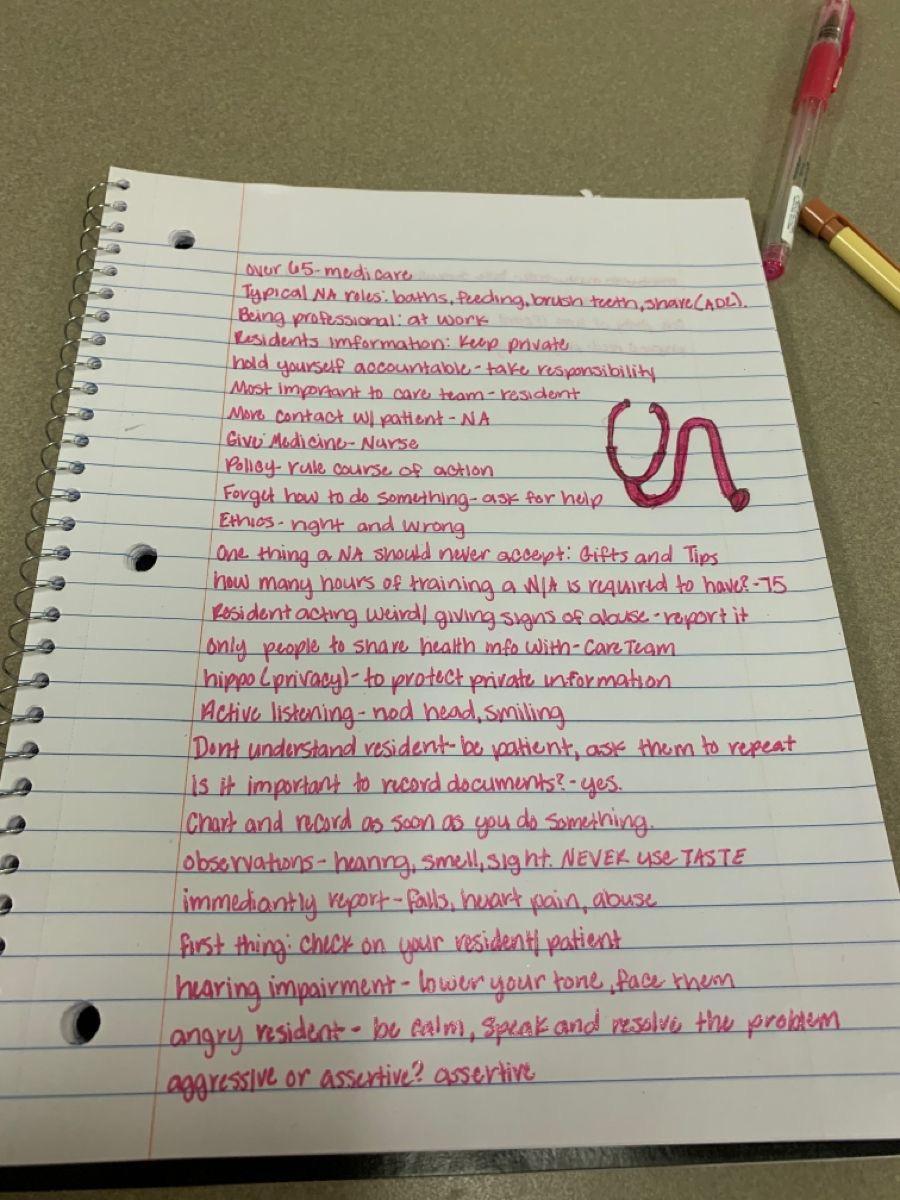 over 65-medicare
Typical NA roles: baths, feeding, brush teeth, share(ADL).
Being professional: at work
Residents imformation: Keep private
hold yourself accountable-take responsibility
Most important to care team-resident
More contact w/ patient-NA
Give Medicine-Nurse
Policy-rule course of action
Forget how to do something-ask for help
Ethics-right and wrong
One thing a NA should never accept: Gifts and Tips
how many hours of training a N/A is required to have?-75
Resident acting weird/ giving signs of abuse-report it
only people to share health info with-Care Team
hippo(privacy)-to protect private information
Active listening-nod head, smiling
Dont understand resident-be patient, ask them to repeat
Is it important to record documents?-yes.
Chart and record as soon as you do something.
observations-hearing, smell, sight. NEVER use TASTE
immediantly report-falls, heart pain, abuse
first thing: check on your resident/ patient
hearing impairment-lower your tone, face them
angry resident-be calm, speak and resolve the problem
aggressive or assertive? assertive